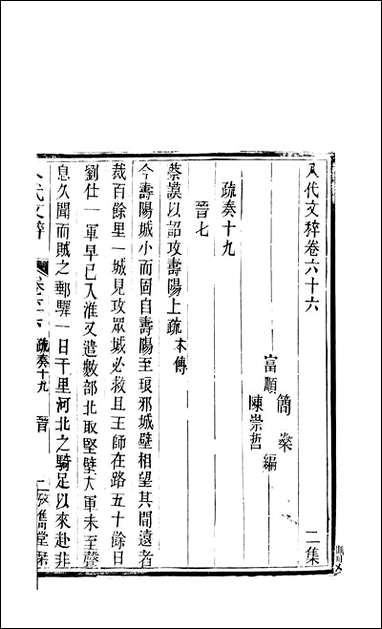 八代文粹卷六十六 二集
富順 簡燊 陳崇哲 編
疏奏十九
晉七
蔡謨以詔攻壽陽上疏 本傳
今壽陽城小而固自壽陽至琅邪城壁相望其間遠者
裁百餘里一城見攻眾城必救且王師在路五十餘日
劉仕一軍早已入淮又遣數部北取堅壁大軍未至聲
息久聞而賊之郵驛一日千里河北之騎足以來赴非
八代文粹 卷六十六 疏奏十九 晉 雋堂